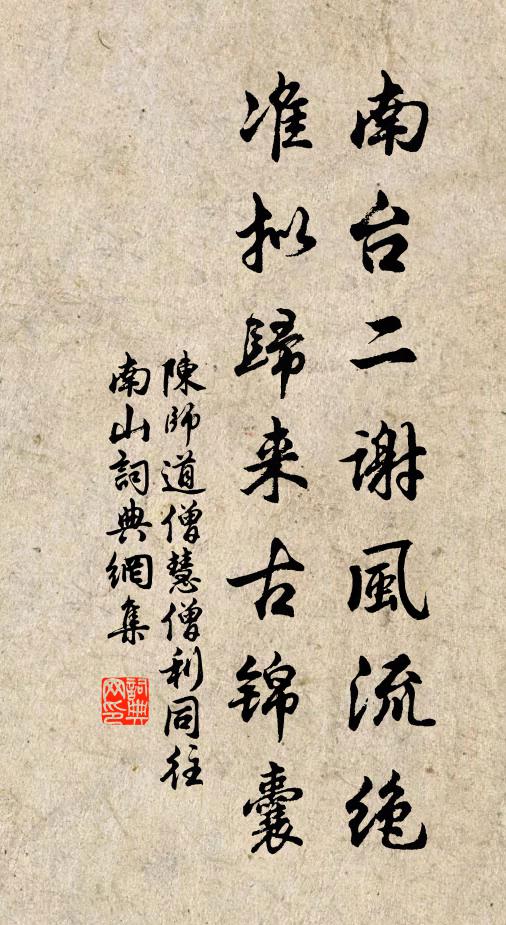 南台二谢風流绝
准拟歸来古锦囊
陳師道僧慧僧利同往
南山詞典網集
詞典网印